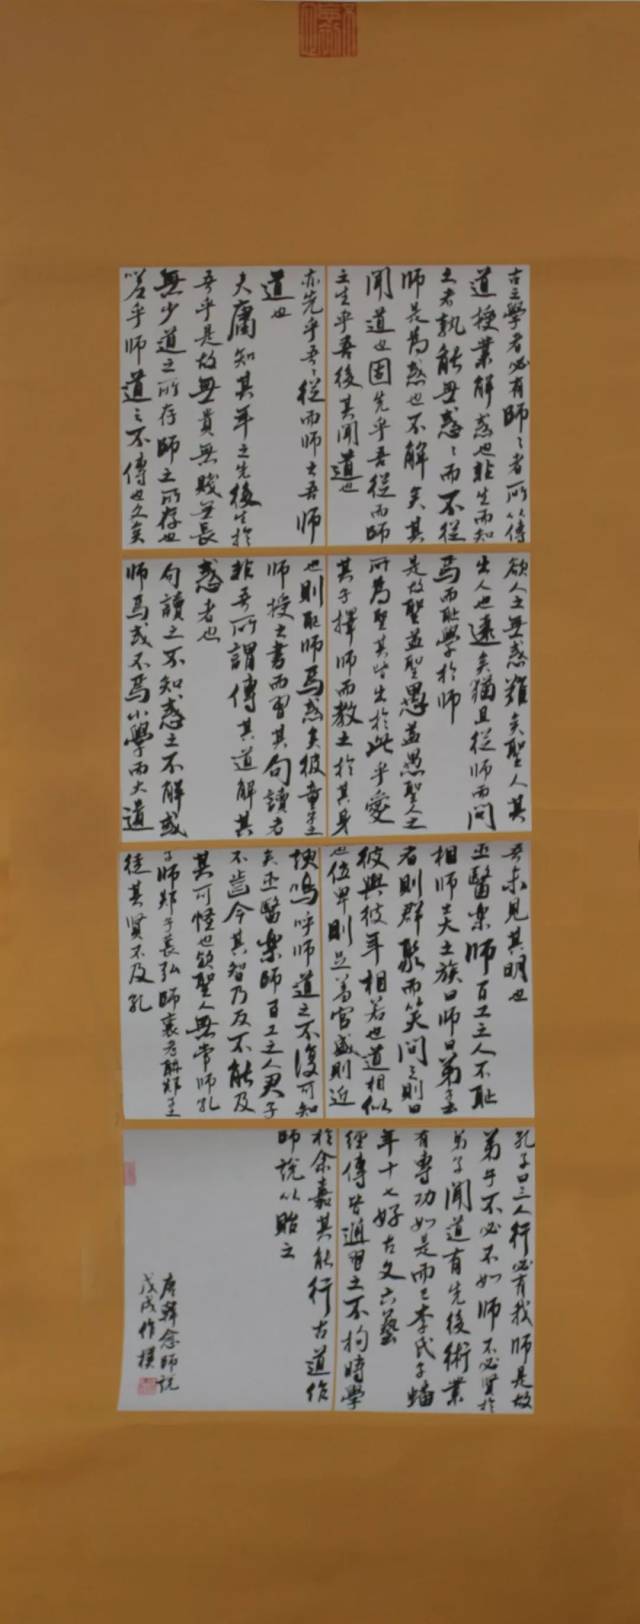 古之學者必有師〻者所以傳
道授業解惑也非生而知
之者孰能無惑〻而不從
師是為惑也不解矣其
聞道也固先乎吾從而師
之生乎吾後其聞道也
亦先乎吾〻從而師之吾師
道也
夫庸知其年之先後生於
吾乎是故無貴無賤無長
無少道之所存師之所存也
嗟乎師道之不傳也久矣
欲人之無惑難矣聖人其
出人也遠矣猶且從師而問
焉而恥學於師
是故聖益聖愚益愚聖人之
所為聖其皆出於此乎愛
其子擇師而教之於其身
也則恥師焉惑矣彼童子
師授之書而習其句讀者
非吾所謂傳其道解其
惑者也
句讀之不知惑之不解或
師焉或不焉小學而大遺
吾未見其明也
巫醫樂師百工之人不恥
相師矣士族曰師曰弟子
者則群聚而笑問之則曰
彼與彼年相若也道相似
也位卑則足羞官盛則近
諛嗚呼師道之不復可知
矣巫醫樂師百工之人君子
不齒今其智乃反不能及
其可怪也歟聖人無常師孔
子師郯子萇弘師襄老聃郯子
徒其賢不及孔
孔子曰三人行必有我師是故
弟子不必不如師不必賢於
弟子聞道有先後術業
有專攻如是而已李氏子蟠
年十七好古文六藝
經傳皆通習之不拘時學
於余嘉其能行古道作
師說以貽之
唐韓愈師說
戊戌作撰